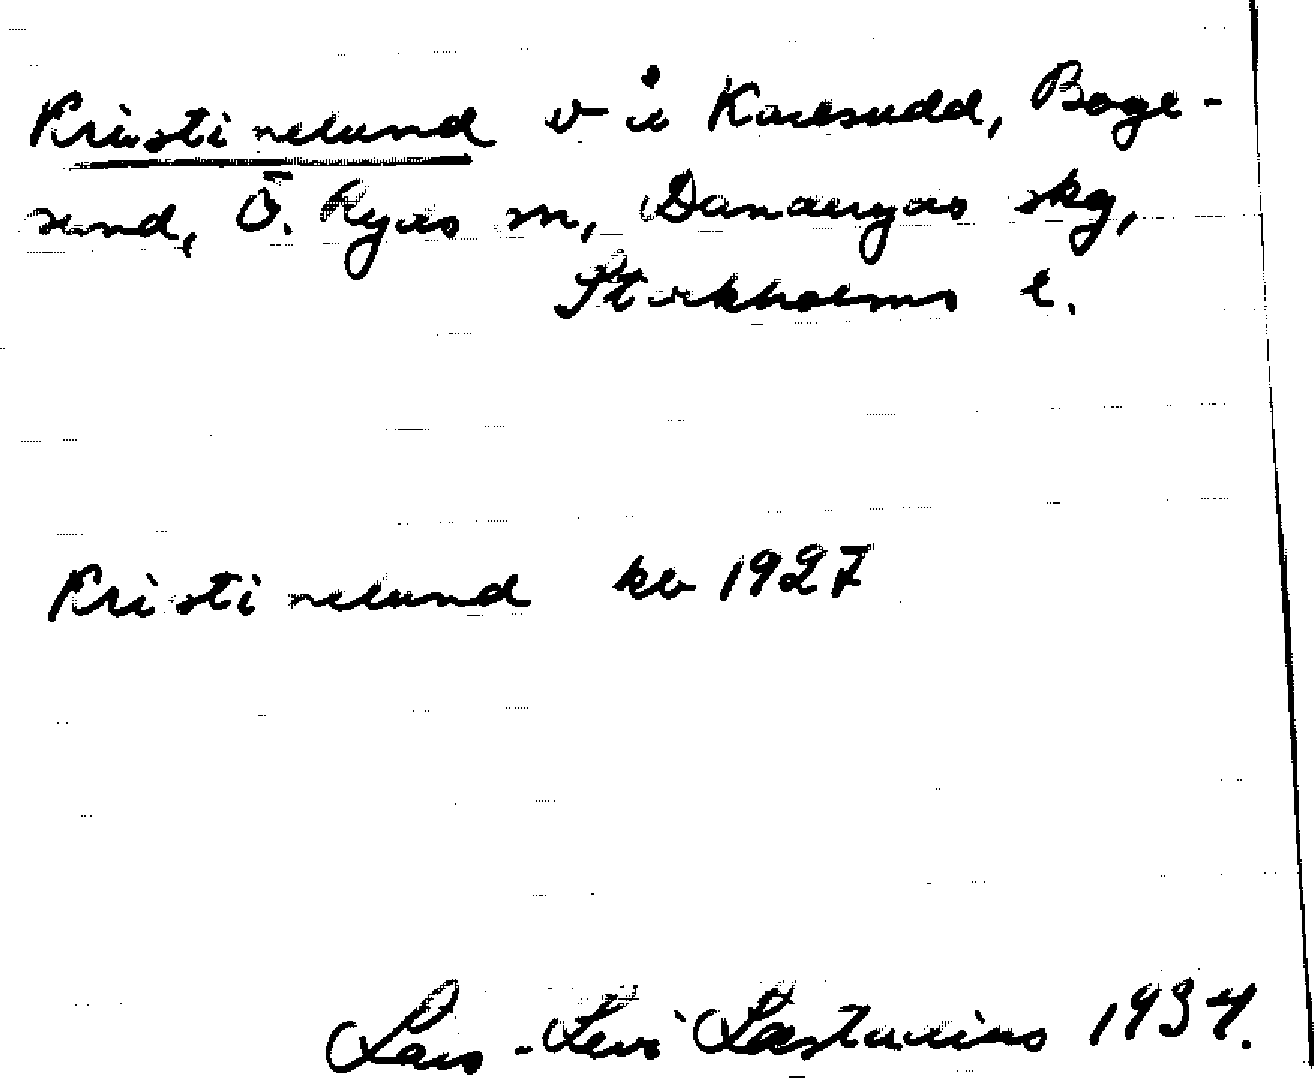 Kristinelund v å Karlsudd, Boge-
sund, Ö. Ryds sn, Danderyds skg,
Stockholms l.
Kristinelund kb 1927
Lars-Levi Læstadius 1934.